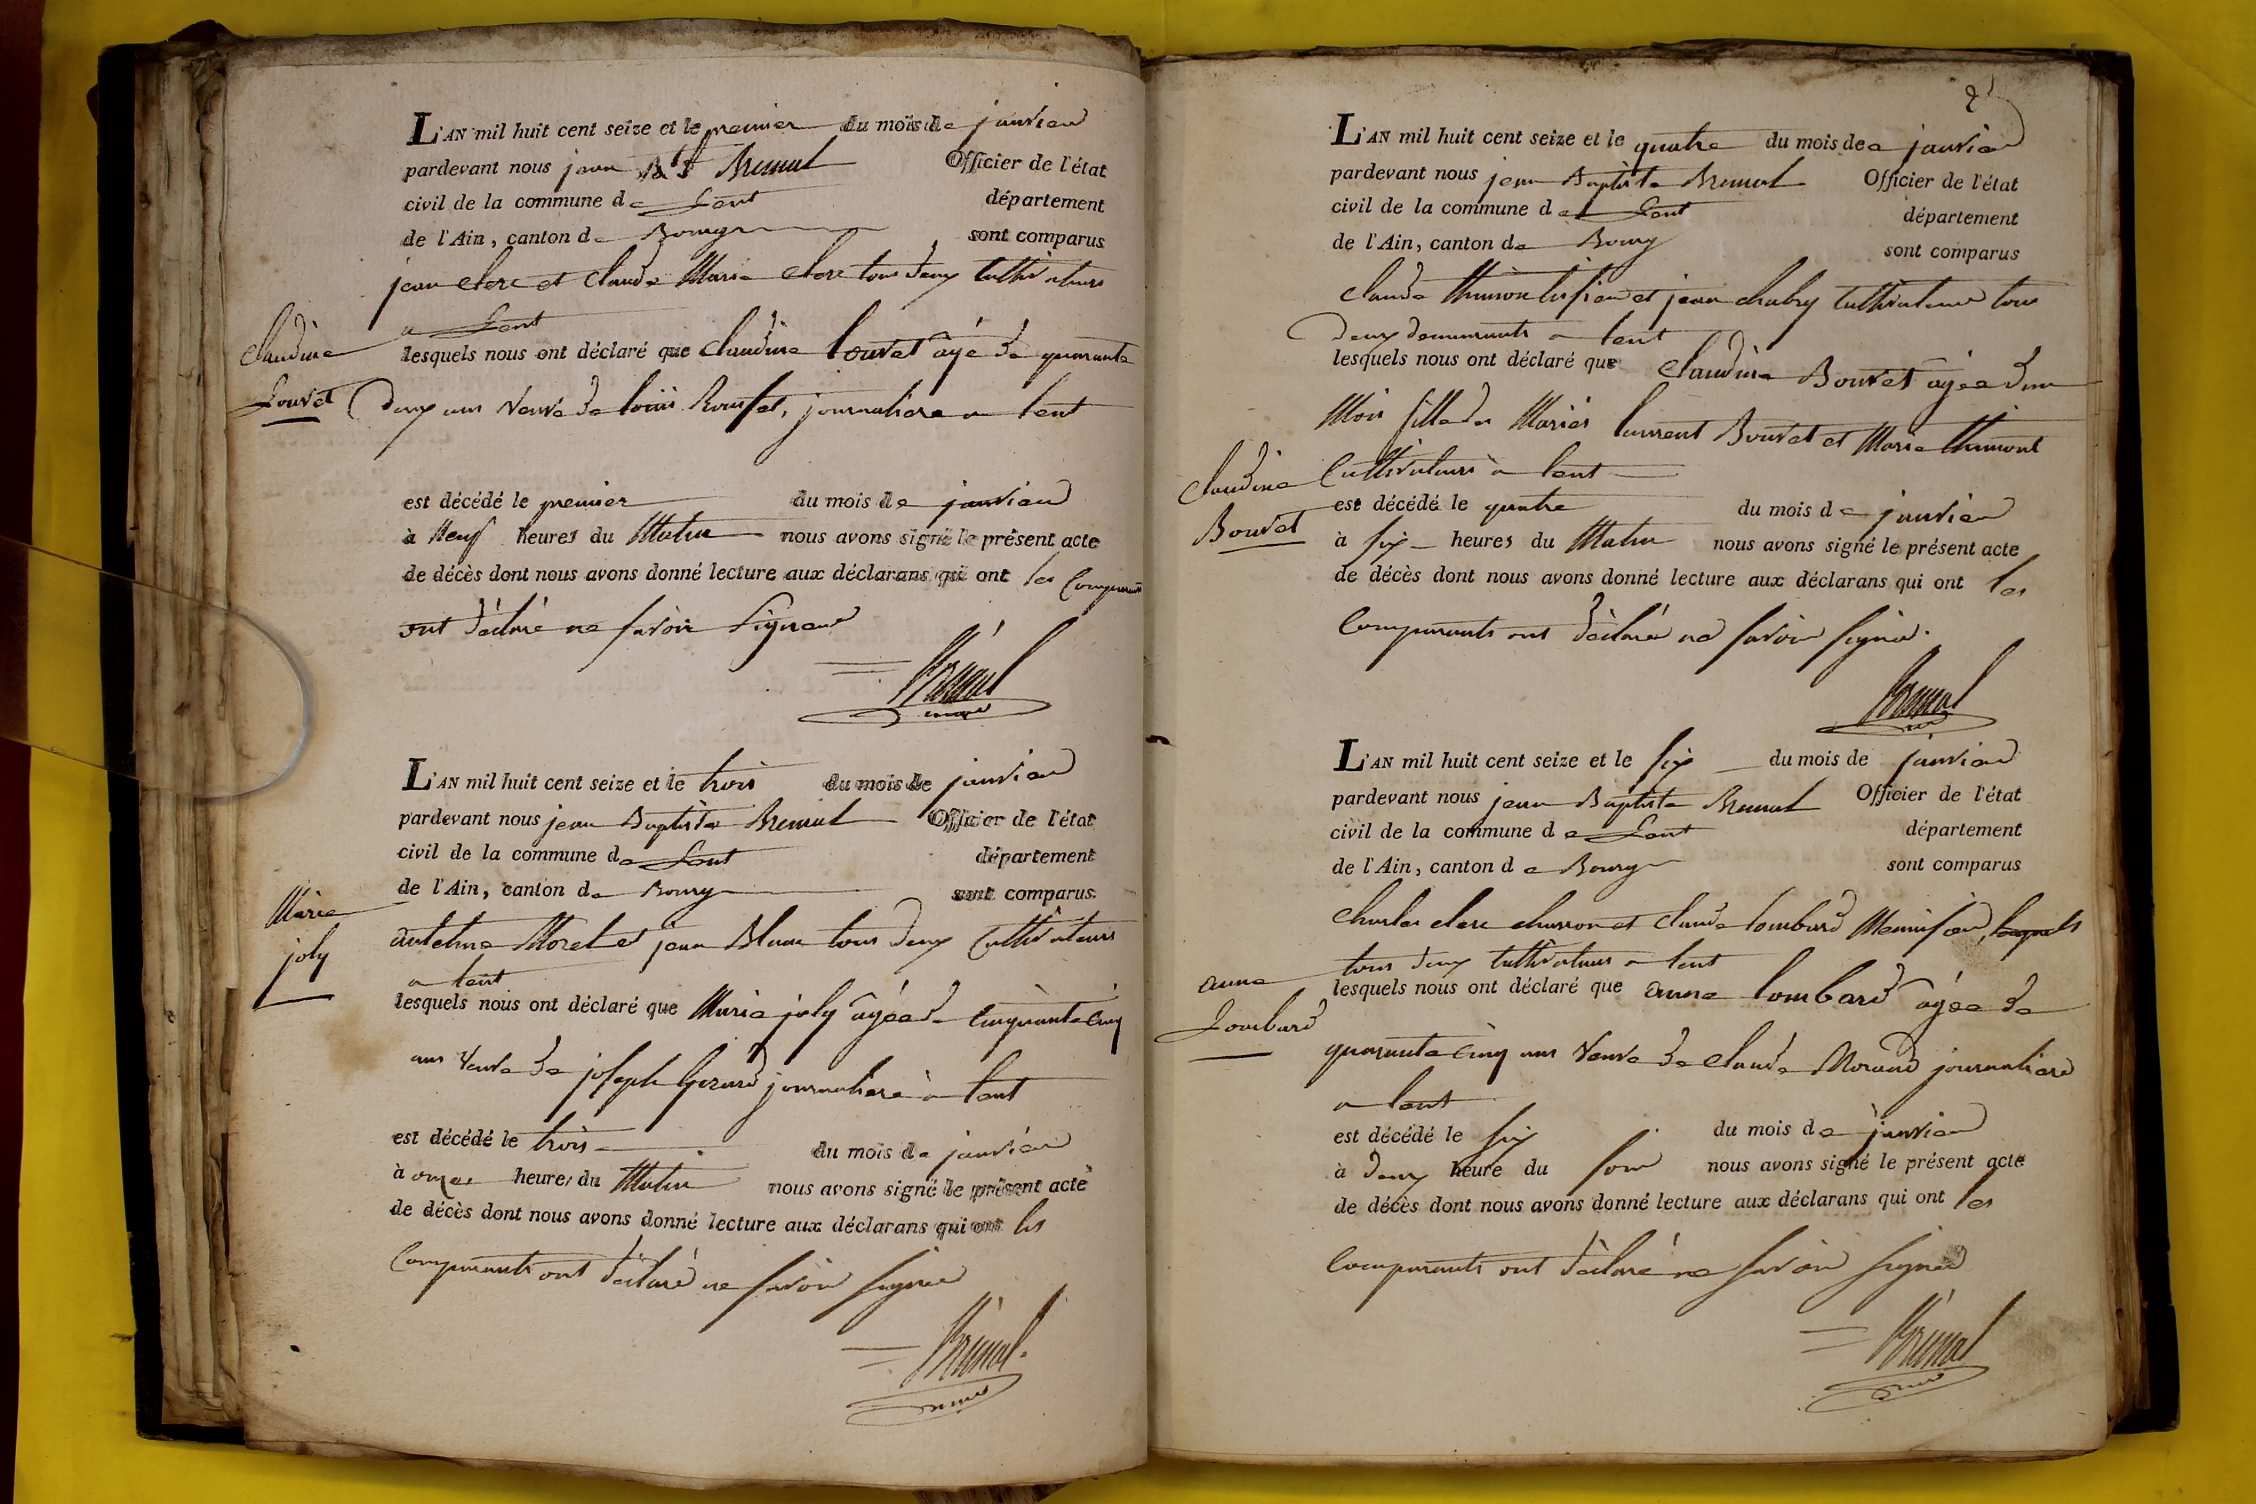 L'AN mil huit cent seize et le premier du mois de janvier
pardevant nous jean Bte Officier de l'état
civil de la commune de Lent département
de l'Ain, canton de Bourg sont comparus
jean clerc et claude Marie clerc tous deux cultivateurs
a Lent
Claudine
Louvet
lesquels nous ont déclaré que claudine Louvet âgé de quarante
deux ans veuve de louis Rousset, journaliere a lent
est décédé le premier du mois de janvier
à Neuf heures du Matin nous avons signé le présent acte
de décès dont nous avons donné lecture aux déclarans qui ont les Comparants
ont déclaré ne savoir signer
L'AN mil huit cent seize et le trois du mois de janvier
pardevant nous jean Baptiste Officier de l'état
civil de la commune de Lent département
de l'Ain, canton de Bourg sont comparus
Marie
joly
antelme Morel et jean Blanc tous deux Cultivateurs
a lent
lesquels nous ont déclaré que Marie joly âgée de cinquante cinq
ans veuve de joseph journaliere à lent
est décédé le trois du mois de janvier
à onze heures du Matin nous avons signé le présent acte
de décès dont nous avons donné lecture aux déclarans qui ont les
Comparants ont déclaré ne savoir signer
2
L'AN mil huit cent seize et le quatre du mois de janvier
pardevant nous jean Baptiste Officier de l'état
civil de la commune de Lent département
de l'Ain, canton de Bourg sont comparus
Claude et jean chabry cultivateur tous
deux demeurants a lent
lesquels nous ont déclaré que Claudine Bouvet âgée d'un
Mois fille des Mariés laurent Bouvet et Marie
Claudine
Bouvet
Cultivateurs a lent
est décédé le quatre du mois de janvier
à six heures du Matin nous avons signé le présent acte
de décès dont nous avons donné lecture aux déclarans qui ont les
Comparants ont déclaré ne savoir signer.
L'AN mil huit cent seize et le six du mois de janvier
pardevant nous jean Baptiste Officier de l'état
civil de la commune de Lent département
de l'Ain, canton de Bourg sont comparus
charles clerc charron et claude lombard
tous deux cultivateurs a lent
anne
Lombard
lesquels nous ont déclaré que anne lombard âgée de
quarante cinq ans veuve de claude Morand journaliere
a lent
est décédé le six du mois de janvier
à deux heure du soir nous avons signé le présent acte
de décès dont nous avons donné lecture aux déclarans qui ont les
Comparants ont déclaré ne savoir signer